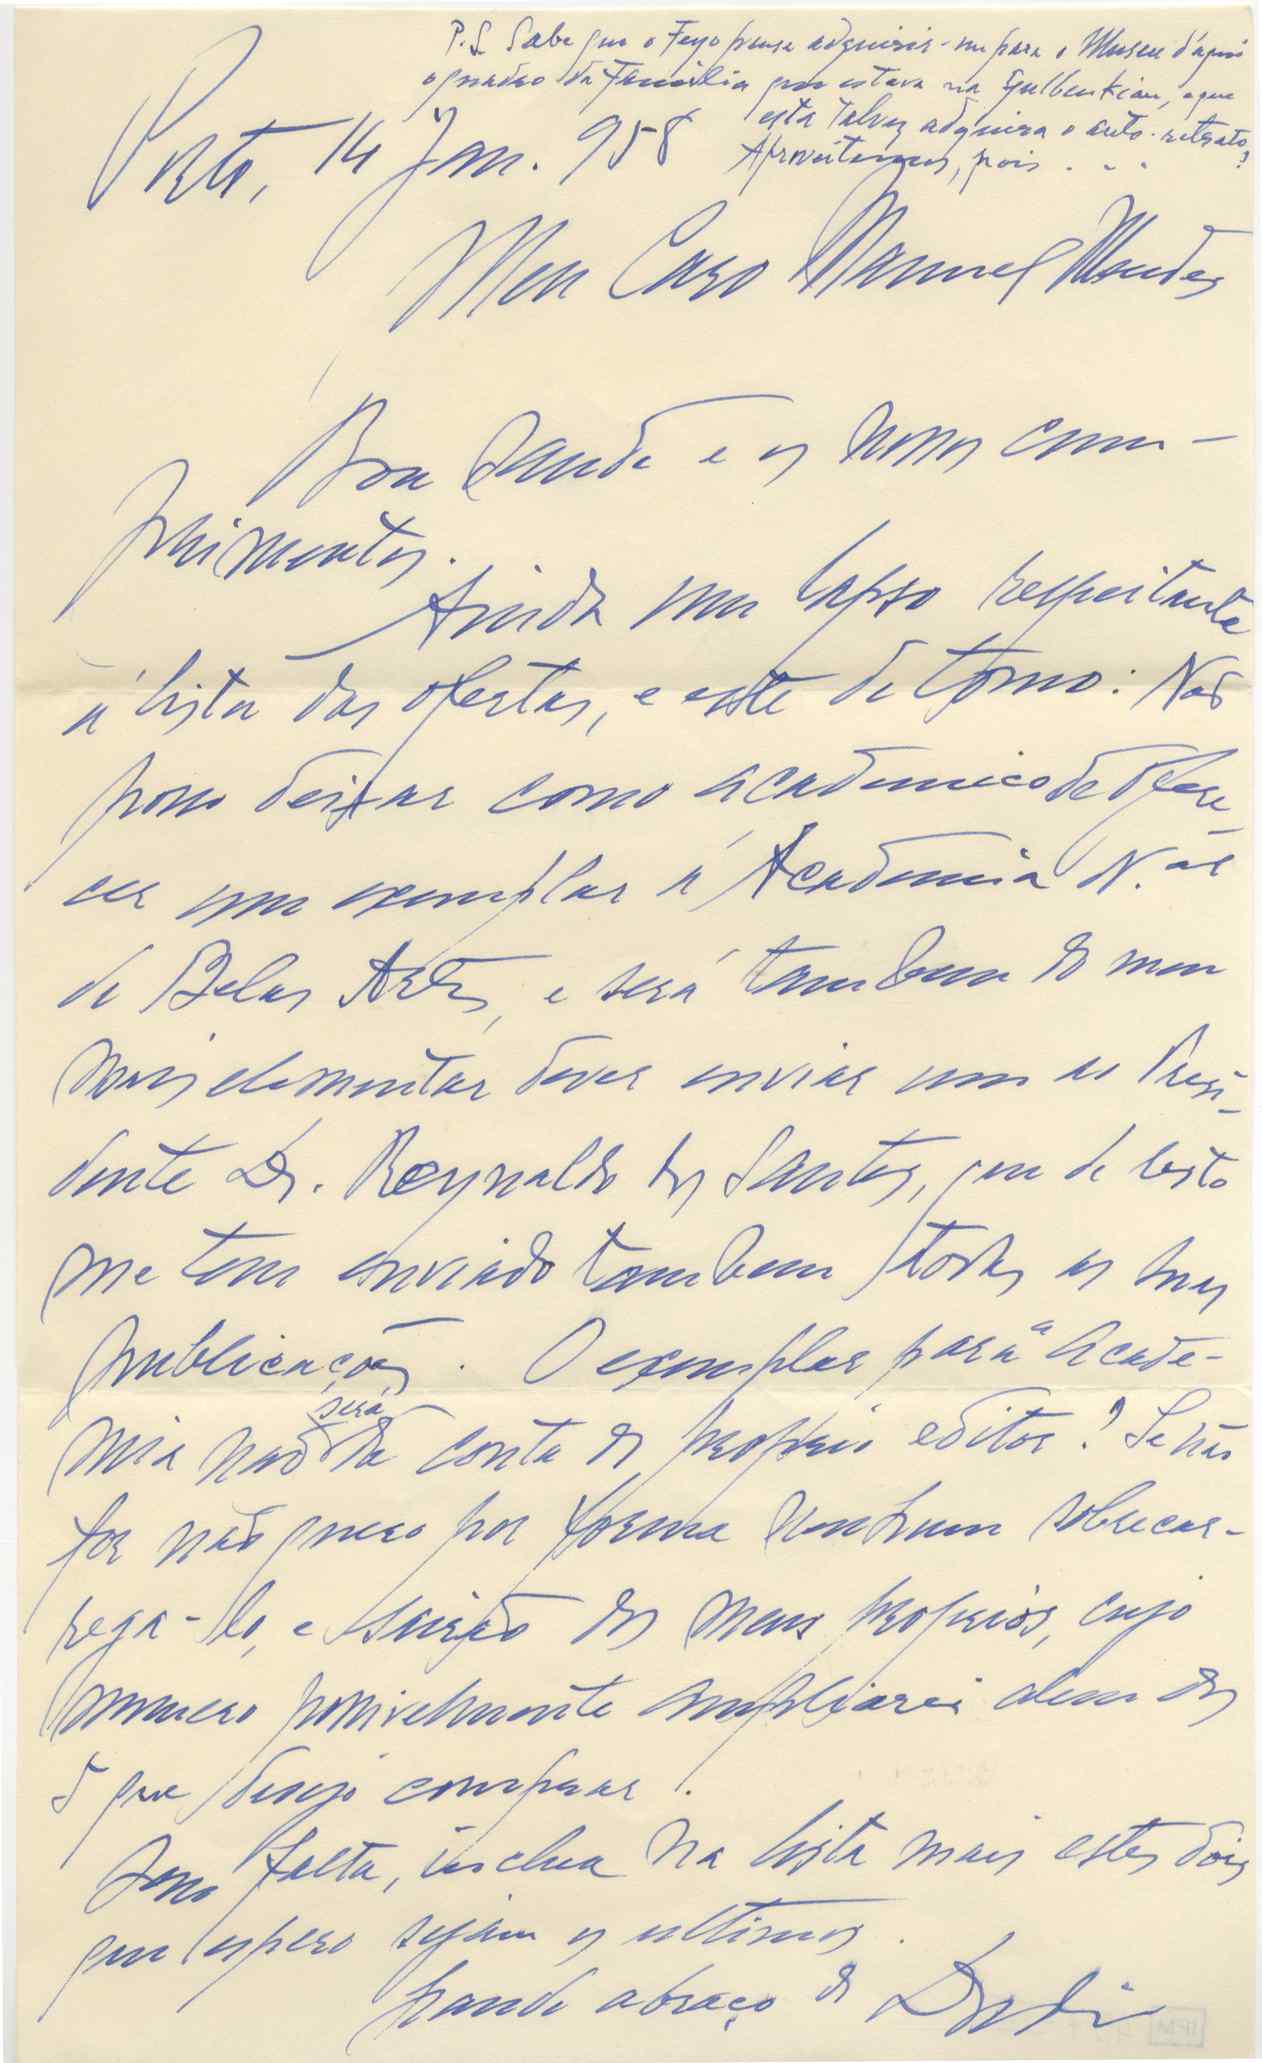 P.S. Sabe que o Feyo pensa adquirir-me para o Museu d'aqui
o quadro da Familia que estava na Gulbenkian, e que
esta talvez adquira o auto-retrato?
Aproveitemos, pois . . .
Porto, 14 Jan. 958
Meu Caro Manuel Mendes
Boa Saude e os nossos cum-
primentos.
Ainda um lapso respeitante
á lista das ofertas, e este de tomo: Não
posso deixar como academico de ofere-
cer um exemplar á Academia N.al
de Belas Artes, e será tambem do meu
mais elementar dever enviar um ao Presi-
dente Dr. Reynaldo dos Santos, que de resto
me tem enviado tambem todas as suas
publicações. O exemplar para a Acade-
mia não será da conta do proprio editor? Se não
for não quero por forma nenhuma sobrecar-
rega-lo, e sairão dos meus proprios, cujo
numero possivelmente ampliarei alem dos
5 que desejo comprar.
Sem falta, inclua na lista mais estes dois
que espero sejam os ultimos.
Grande abraço do Dordio